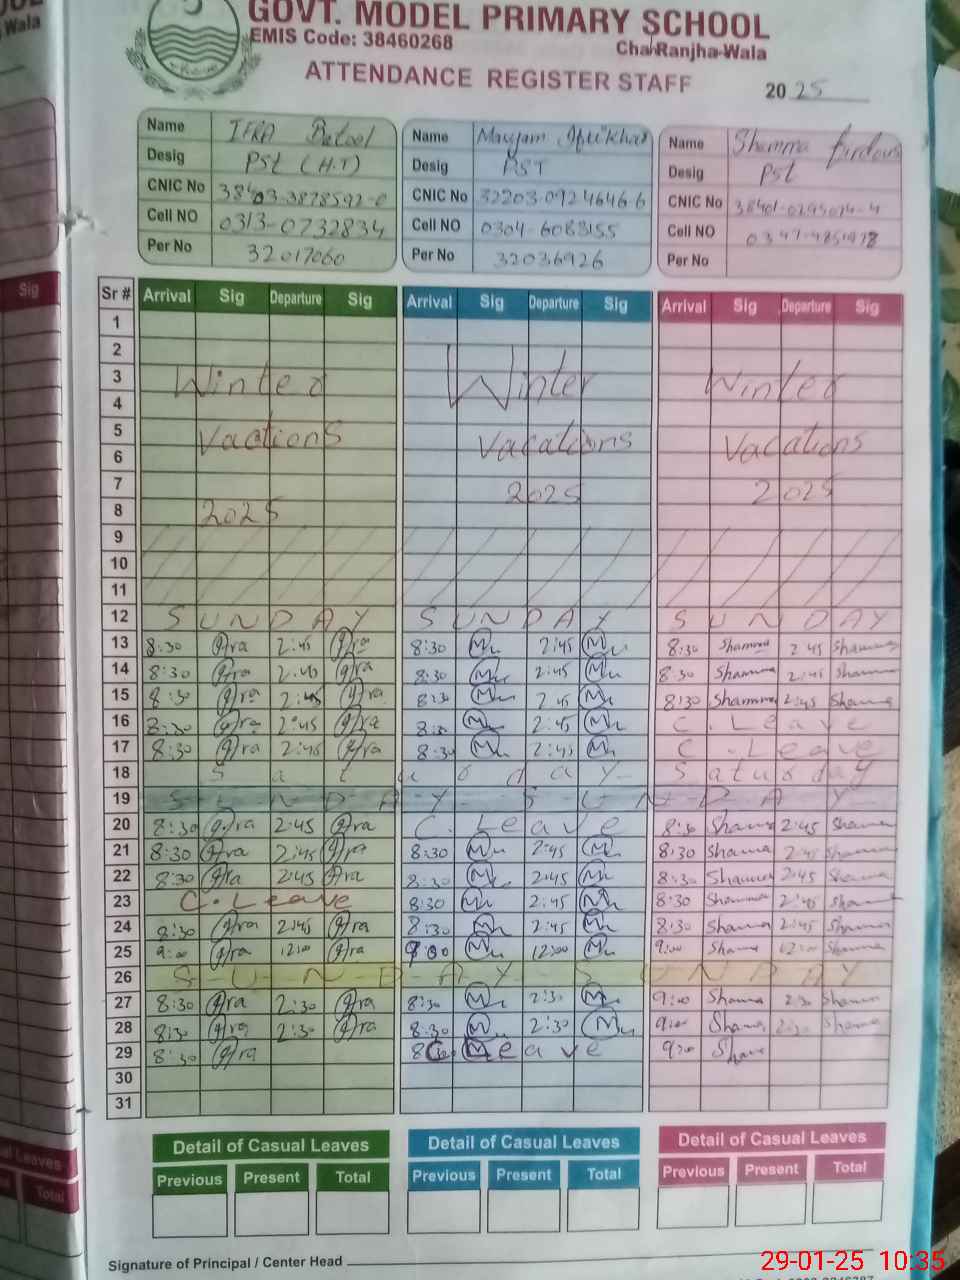 GOVT. MODEL PRIMARY SCHOOL
EMIS Code: 38460268 Chak Ranjha Wala
ATTENDANCE REGISTER STAFF 2025
Name IFRA Batool Name Maryam Iftikhar Name Shamma firdous
Desig PST (H.T) Desig PST Desig PST
CNIC No CNIC No 32203-0924646-6 CNIC No
Cell NO 0313-0732834 Cell NO Cell NO
Per No 32017060 Per No 32036926 Per No
Sr # Arrival Sig Departure Sig Arrival Sig Departure Sig Arrival Sig Departure Sig
1
2
3 Winter Winter Winter
4
5 Vacations Vacations Vacations
6
7 2025 2025
8 2025
9
10
11
12 SUNDAY SUNDAY SUNDAY
13 8:30 Ifra 2:45 Ifra 8:30 2:45 8:30 Shamma 2:45 Shamma
14 8:30 Ifra 2:45 Ifra 8:30 2:45 8:30 Shamma 2:45 Shamma
15 8:30 Ifra 2:45 Ifra 8:30 2:45 8:30 Shamma 2:45 Shamma
16 8:30 Ifra 2:45 Ifra 8:30 2:45 C. Leave
17 8:30 Ifra 2:45 Ifra 8:30 2:45 C. Leave
18 Saturday Saturday
19 SUNDAY SUNDAY
20 8:30 Ifra 2:45 Ifra C. Leave 8:30 Shamma 2:45 Shamma
21 8:30 Ifra 2:45 Ifra 8:30 2:45 8:30 Shamma 2:45 Shamma
22 8:30 Ifra 2:45 Ifra 8:30 2:45 8:30 Shamma 2:45 Shamma
23 C. Leave 8:30 2:45 8:30 Shamma 2:45 Shamma
24 8:30 Ifra 2:45 Ifra 8:30 2:45 8:30 Shamma 2:45 Shamma
25 9:00 Ifra 12:00 Ifra 9:00 12:00 9:00 Shamma 12:00 Shamma
26 SUNDAY SUNDAY
27 8:30 Ifra 2:30 Ifra 8:30 2:30 9:00 Shamma 2:30 Shamma
28 8:30 Ifra 2:30 Ifra 8:30 2:30 9:00 Shamma 2:30 Shamma
29 8:30 Ifra Leave 9:00 Shamma
30
31
Detail of Casual Leaves Detail of Casual Leaves Detail of Casual Leaves
Previous Present Total Previous Present Total Previous Present Total
Signature of Principal / Center Head
29-01-25 10:35